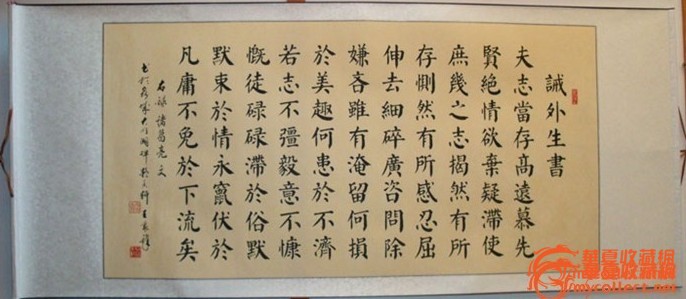 誡外生書
夫志當存高遠慕先
賢絕情欲棄疑滯使
庶幾之志揭然有所
存惻然有所感忍屈
伸去細碎廣咨問除
嫌吝雖有淹留何損
於美趣何患於不濟
若志不彊毅意不慷
慨徒碌碌滯於俗默
默束於情永竄伏於
凡庸不免於下流矣
右録諸葛亮文
華夏收藏網
mycollect.net